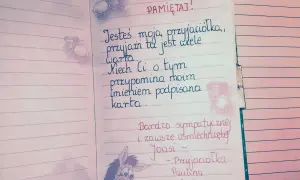 PAMIĘTAJ!
Jesteś moją przyjaciółką,
przyjaźń ta jest wiele
warta.
Niech Ci o tym
przypomina moim
imieniem podpisana
karta.
Bardzo sympatycznej
i zawsze uśmiechniętej
Joasi –
– Przyjaciółka
Paulina